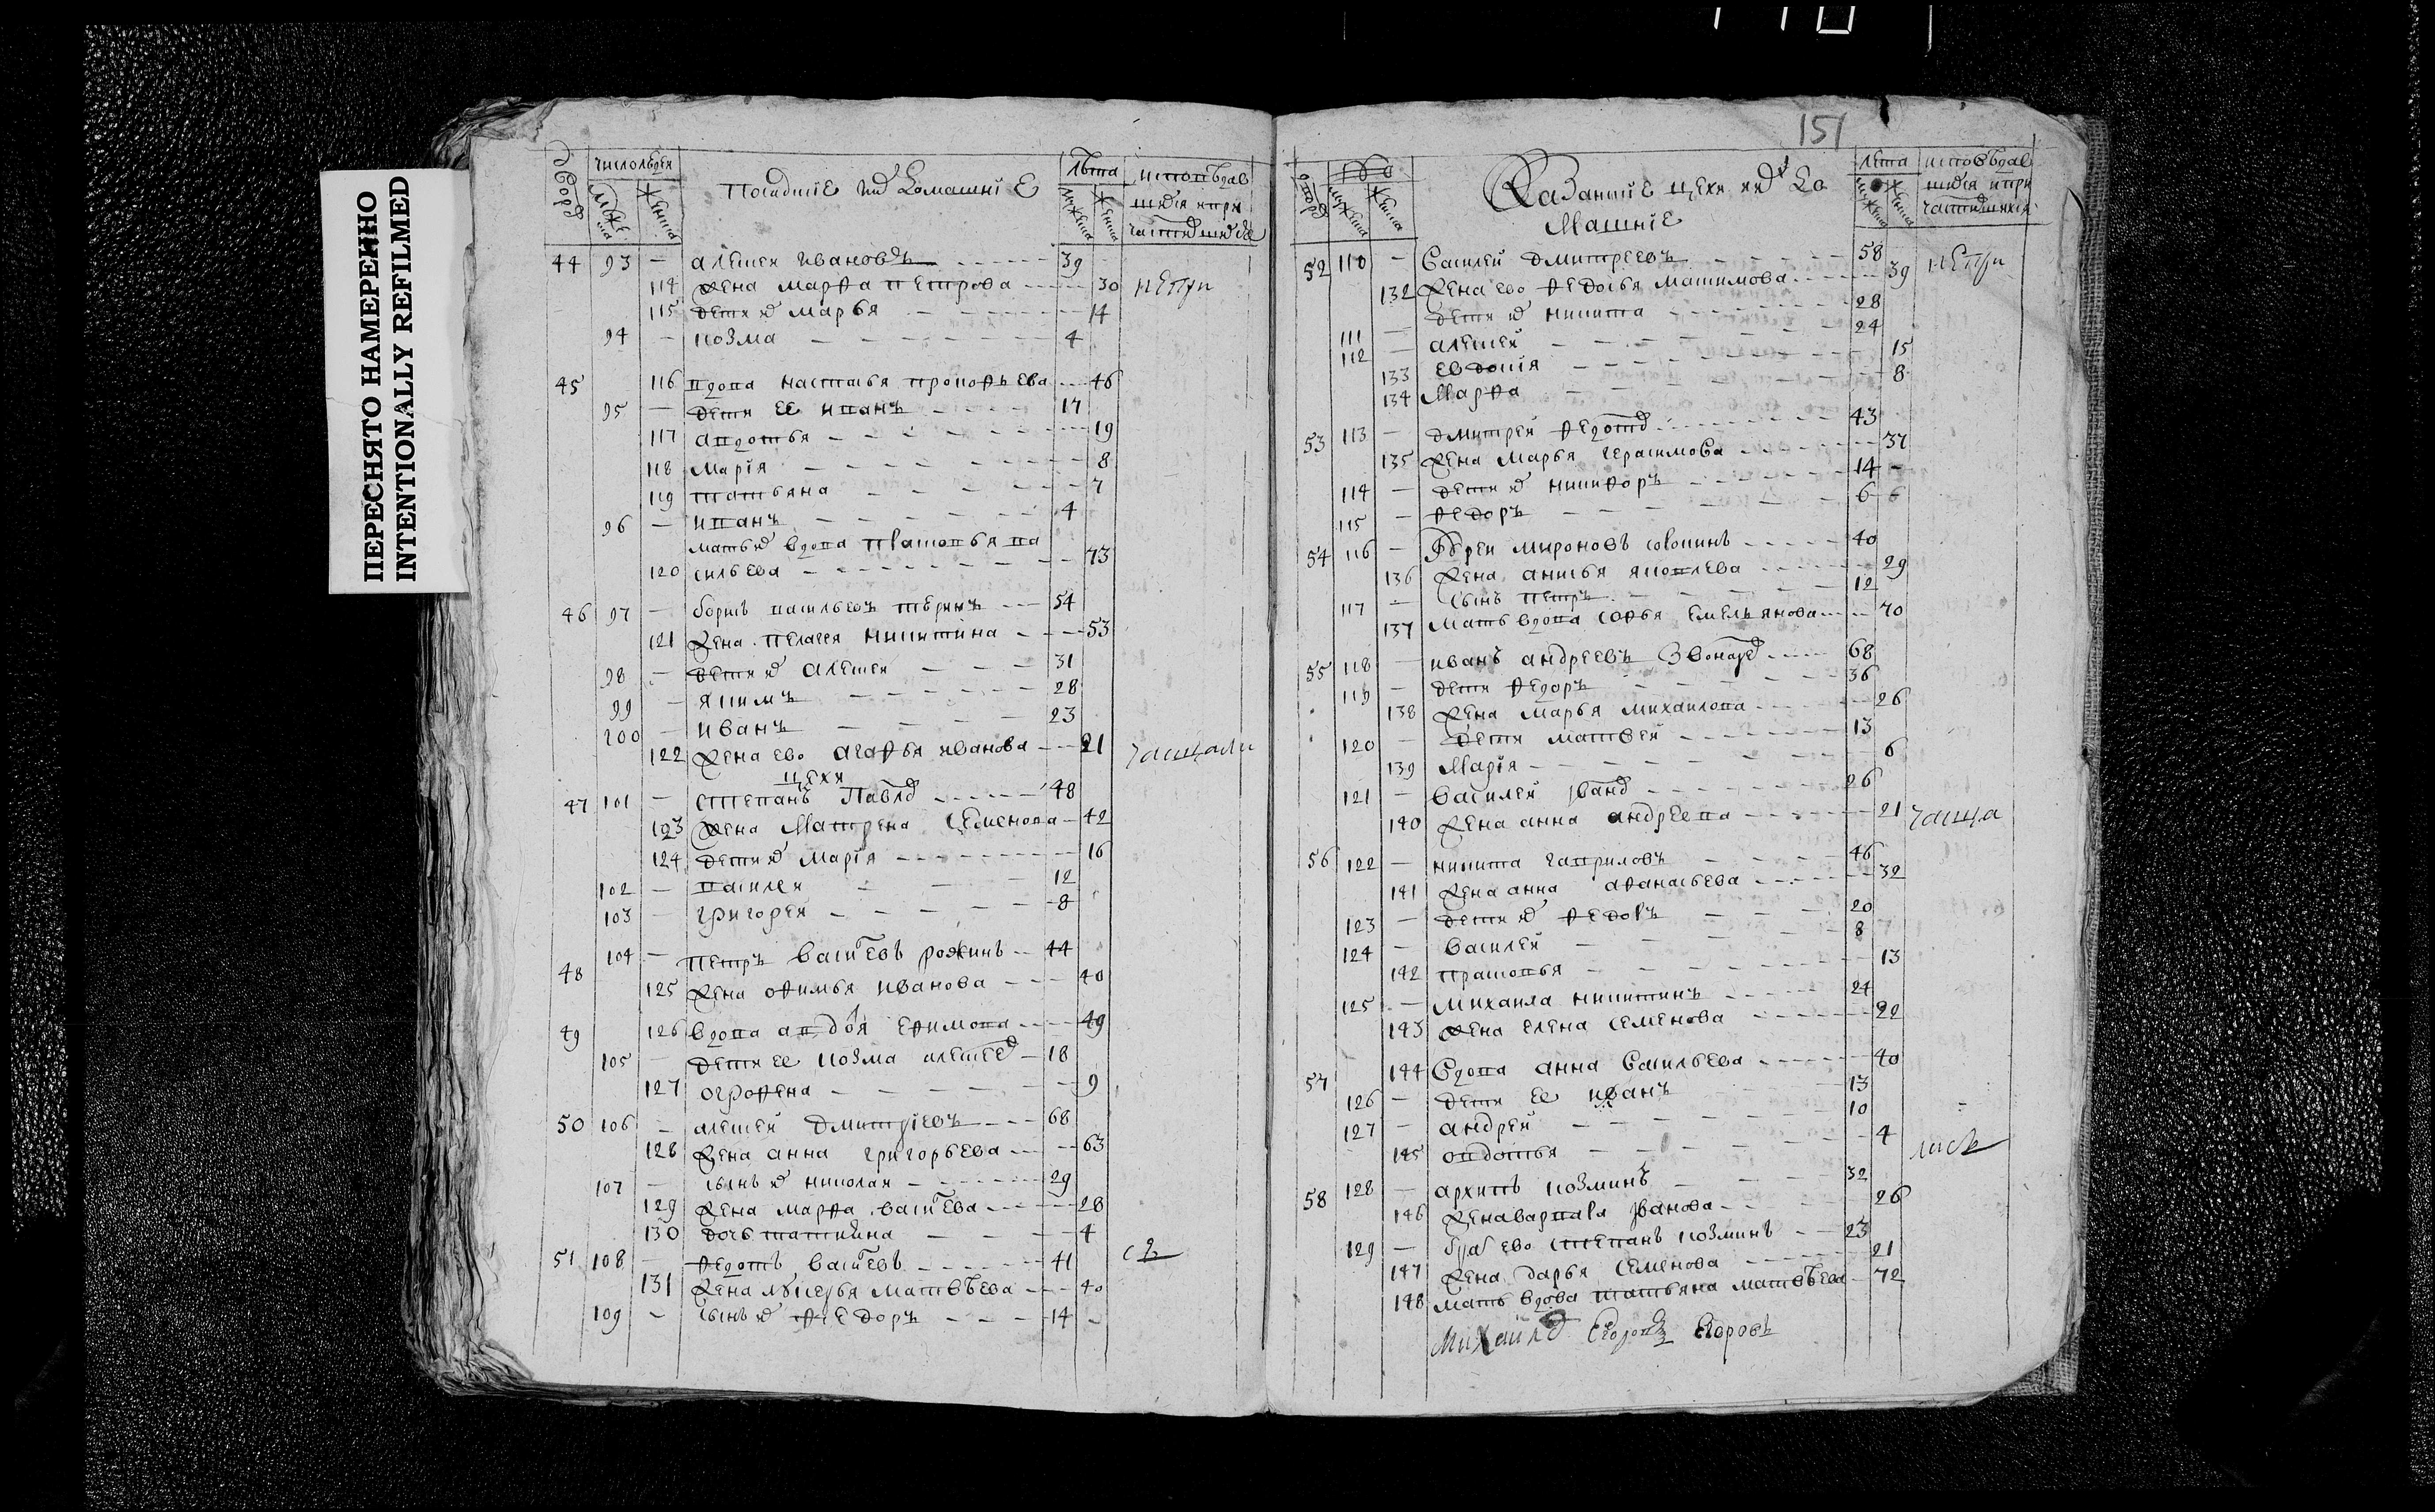 151
ПЕРЕСНЯТО НАМЕРЕННО
INTENTIONALLY REFILMED
число людей лѣта исповѣдав
посадские и домашние шихся и при
44 93 — алексеи Ивановъ 39
114 жена Марфа петрова 30 непри
115 дети ево марья 14
94 — козма 4
45 116 вдова настасья прокофьева 46
95 — дети ее иванъ 17
117 авдотья 19
118 Марiя 8
119 татьяна 7
96 — иванъ 4
мать ево вдова прасковья ва
120 сильева 73
46 97 — борисъ васильевъ 54
121 жена пелагея никитина 53
98 — дети ево алексеи 31
99 — якимъ 28
100 — иванъ 23
122 жена ево агафья иванова 21 чащали
цехи
47 101 — степанъ Павло 48
123 жена Матрена Семенова 42
124 дети ево марiя 16
102 — василеи 12
103 — григореи 8
48 104 — петръ васиевъ рожинъ 44
125 жена офимья иванова 40
49 126 вдова авдоя ефимова 49
105 — дети ее козма алексее 18
127 огрофена 9
50 106 — алексеи дмитрiевъ 68
128 жена анна григорьева 63
107 — сынъ ево николаи 29
129 жена марфа васиева 28
130 дочь татияна 4
51 108 — федотъ васиевъ 41
131 жена лукерья матвѣева 40
109 — сынъ ево федоръ 14
лета исповѣдав
Казанские цехи и до
машнiе
52 110 — Василеи дмитреевъ 58 непри
132 жена ево федосья макимова 39
111 — дети ево никита 28
112 — алексеи 24
133 евдокiя 15
134 Марфа 8
53 113 — дмитреи федото 43
135 жена марья герасимова 37
114 — дети ево никифоръ 14
115 — федоръ 6
54 116 — мироновъ 40
136 жена анисья яковлева 29
117 — сынъ петръ 12
137 мать вдова софья емельянова 70
55 118 — иванъ андреевъ 68
119 — дети федоръ 36
138 жена марья михаилова 26
120 — дети матвеи 13
139 Марiя 6
121 — василеи Ивано 26
140 жена анна андреева 21 чаща
56 122 — никита гавриловъ 46
141 жена анна афанасьева 32
123 — дети ево федоръ 20
124 — василеи 8
142 прасковья 13
125 — михаила никитинъ 24
143 жена елена семенова 22
57 144 вдова анна васильева 40
126 — дети ее иванъ 13
127 — андреи 10
145 овдотья 4
58 128 — архипъ козминъ 32
146 жена варвара Иванова 26
129 — брат ево степанъ козминъ 23
147 жена дарья семенова 21
148 мать вдова татьяна матвѣева 72
Михаило Егоровъ